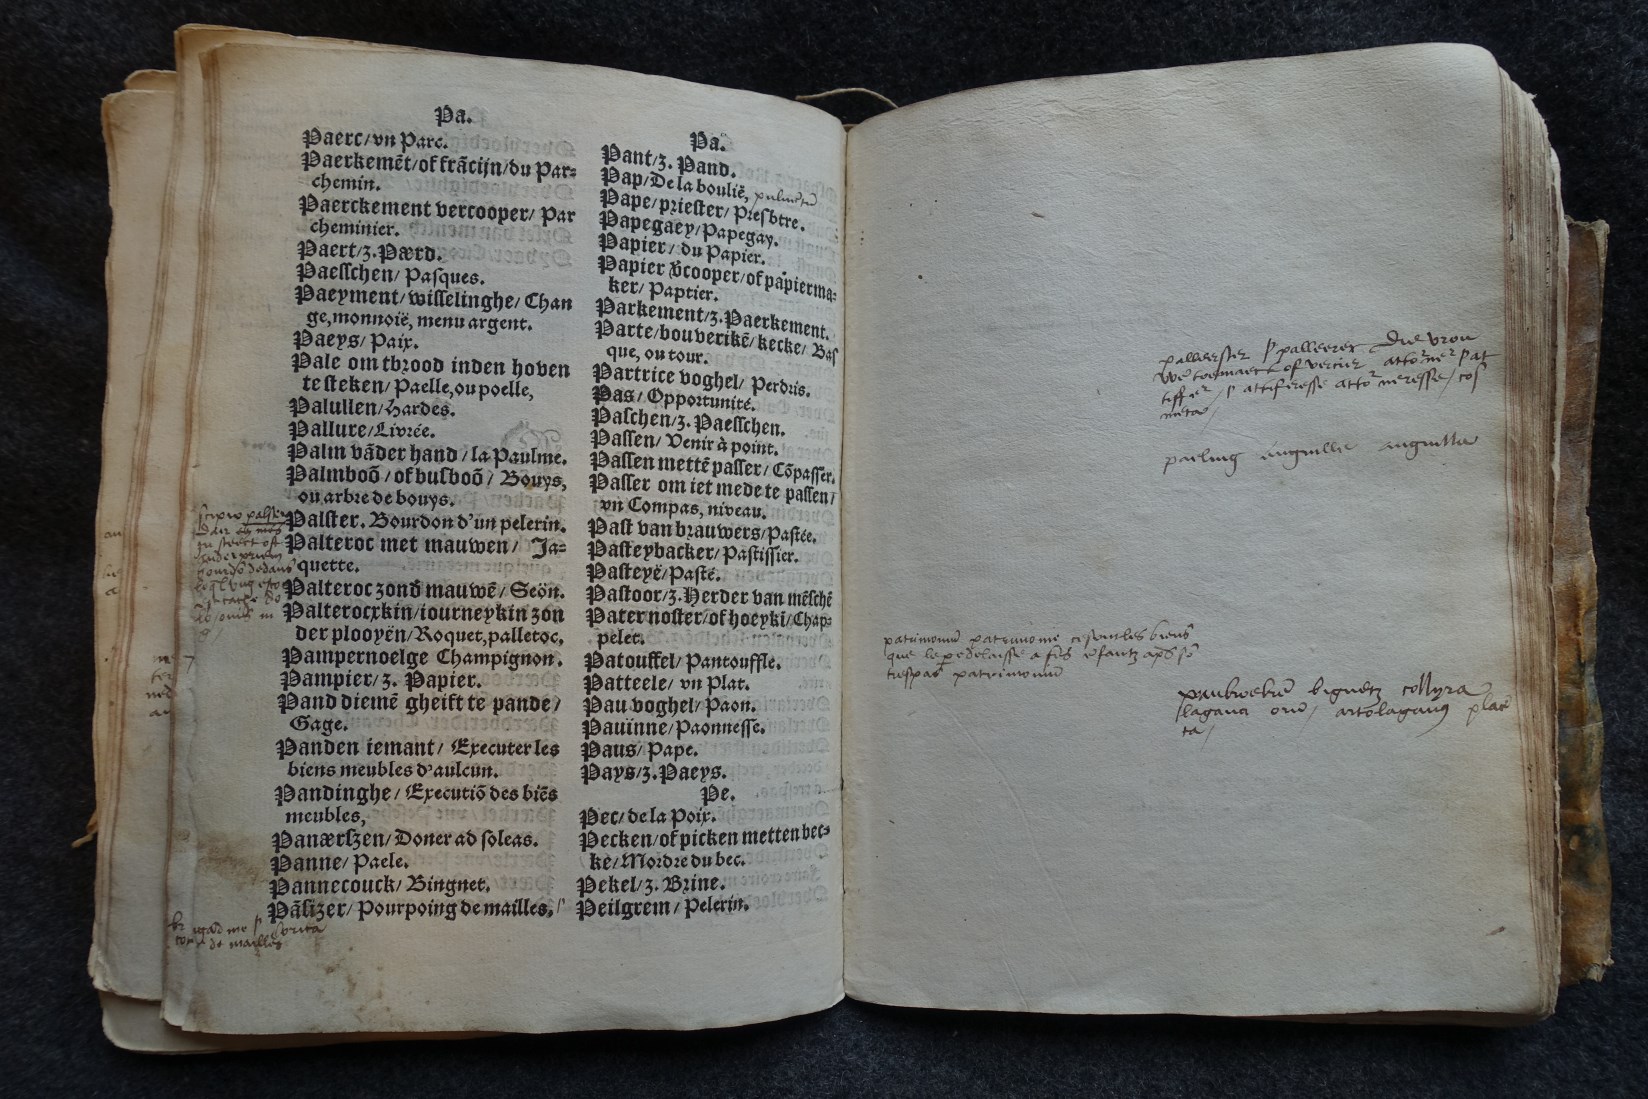 Pa.
Paerc/vn Parc.
Paerkemēt/of frācijn/du Par=
chemin.
Paerckement vercooper/ Par
cheminier.
Paert/z. Pærd.
Paesschen/ Pasques.
Paeyment/wisselinghe/ Chan
ge,monnoië, menu argent.
Paeys/ Paix.
Pale om tbrood inden hoven
te steken/ Paelle,ou poelle,
Palullen/Hardes.
Pallure/Livrée.
Palm vāder hand/la Paulme.
Palmboō/of busboō/ Bouys,
ou arbre de bouys.
Palster. Bourdon d'un pelerin.
Palteroc met mauwen/ Ja=
quette.
Palteroc zond mauwē/ Seön.
Palterocxkin/iourneykin zon
der plooyën/Roquet,palletoc.
Pampernoelge Champignon.
Pampier/z. Papier.
Pand diemē gheift te pande/
Gage.
Panden iemant/ Executer les
biens meubles d'aulcun.
Pandinghe/Executiō des biēs
meubles,
Panærszen/Doner ad soleas.
Panne/ Paele.
Pannecouck/ Bingnet.
Pāsizer/Pourpoing de mailles.
de mailles
Pa.
Pant/z. Pand.
Pap/De la boulië,
Pape/priester/Presbtre.
Papegaey/Papegay.
Papier/ du Papier.
Papier v̄cooper/of papier ma=
ker/ Paptier.
Parkement/z.Paerkement.
Parte/bouverikē/kecke/ Bas
que, ou tour.
Partrice voghel/ Perdris.
Pas/ Opportunité.
Paschen/z. Paesschen.
Passen/ Venir à point.
Passen mettē passer/ Cōpasser.
Passer om iet mede te passen/
vn Compas, niveau.
Past van brauwers/Pastée.
Pasteybacker/Pastissier.
Pasteyë/Pasté.
Pastoor/z.Herder van mēschē
Pater noster/of hoeyki/Chap=
pelet.
Patouffel/Pantouffle.
Patteele/ vn Plat.
Pau voghel/Paon.
Pauïnne/Paonnesse.
Paus/Pape.
Pays/z.Paeys.
Pe.
Pec/de la Poix.
Pecken/of picken metten bec=
kē/Mordre du bec.
Pekel/z. Brine.
Peilgrem/ Pelerin.
palleerster palleerer
paeling anguille anguilla
patrimonie
que le
trespas patrimonium
bignetz collyra
lagana artolaganus placē
ta/